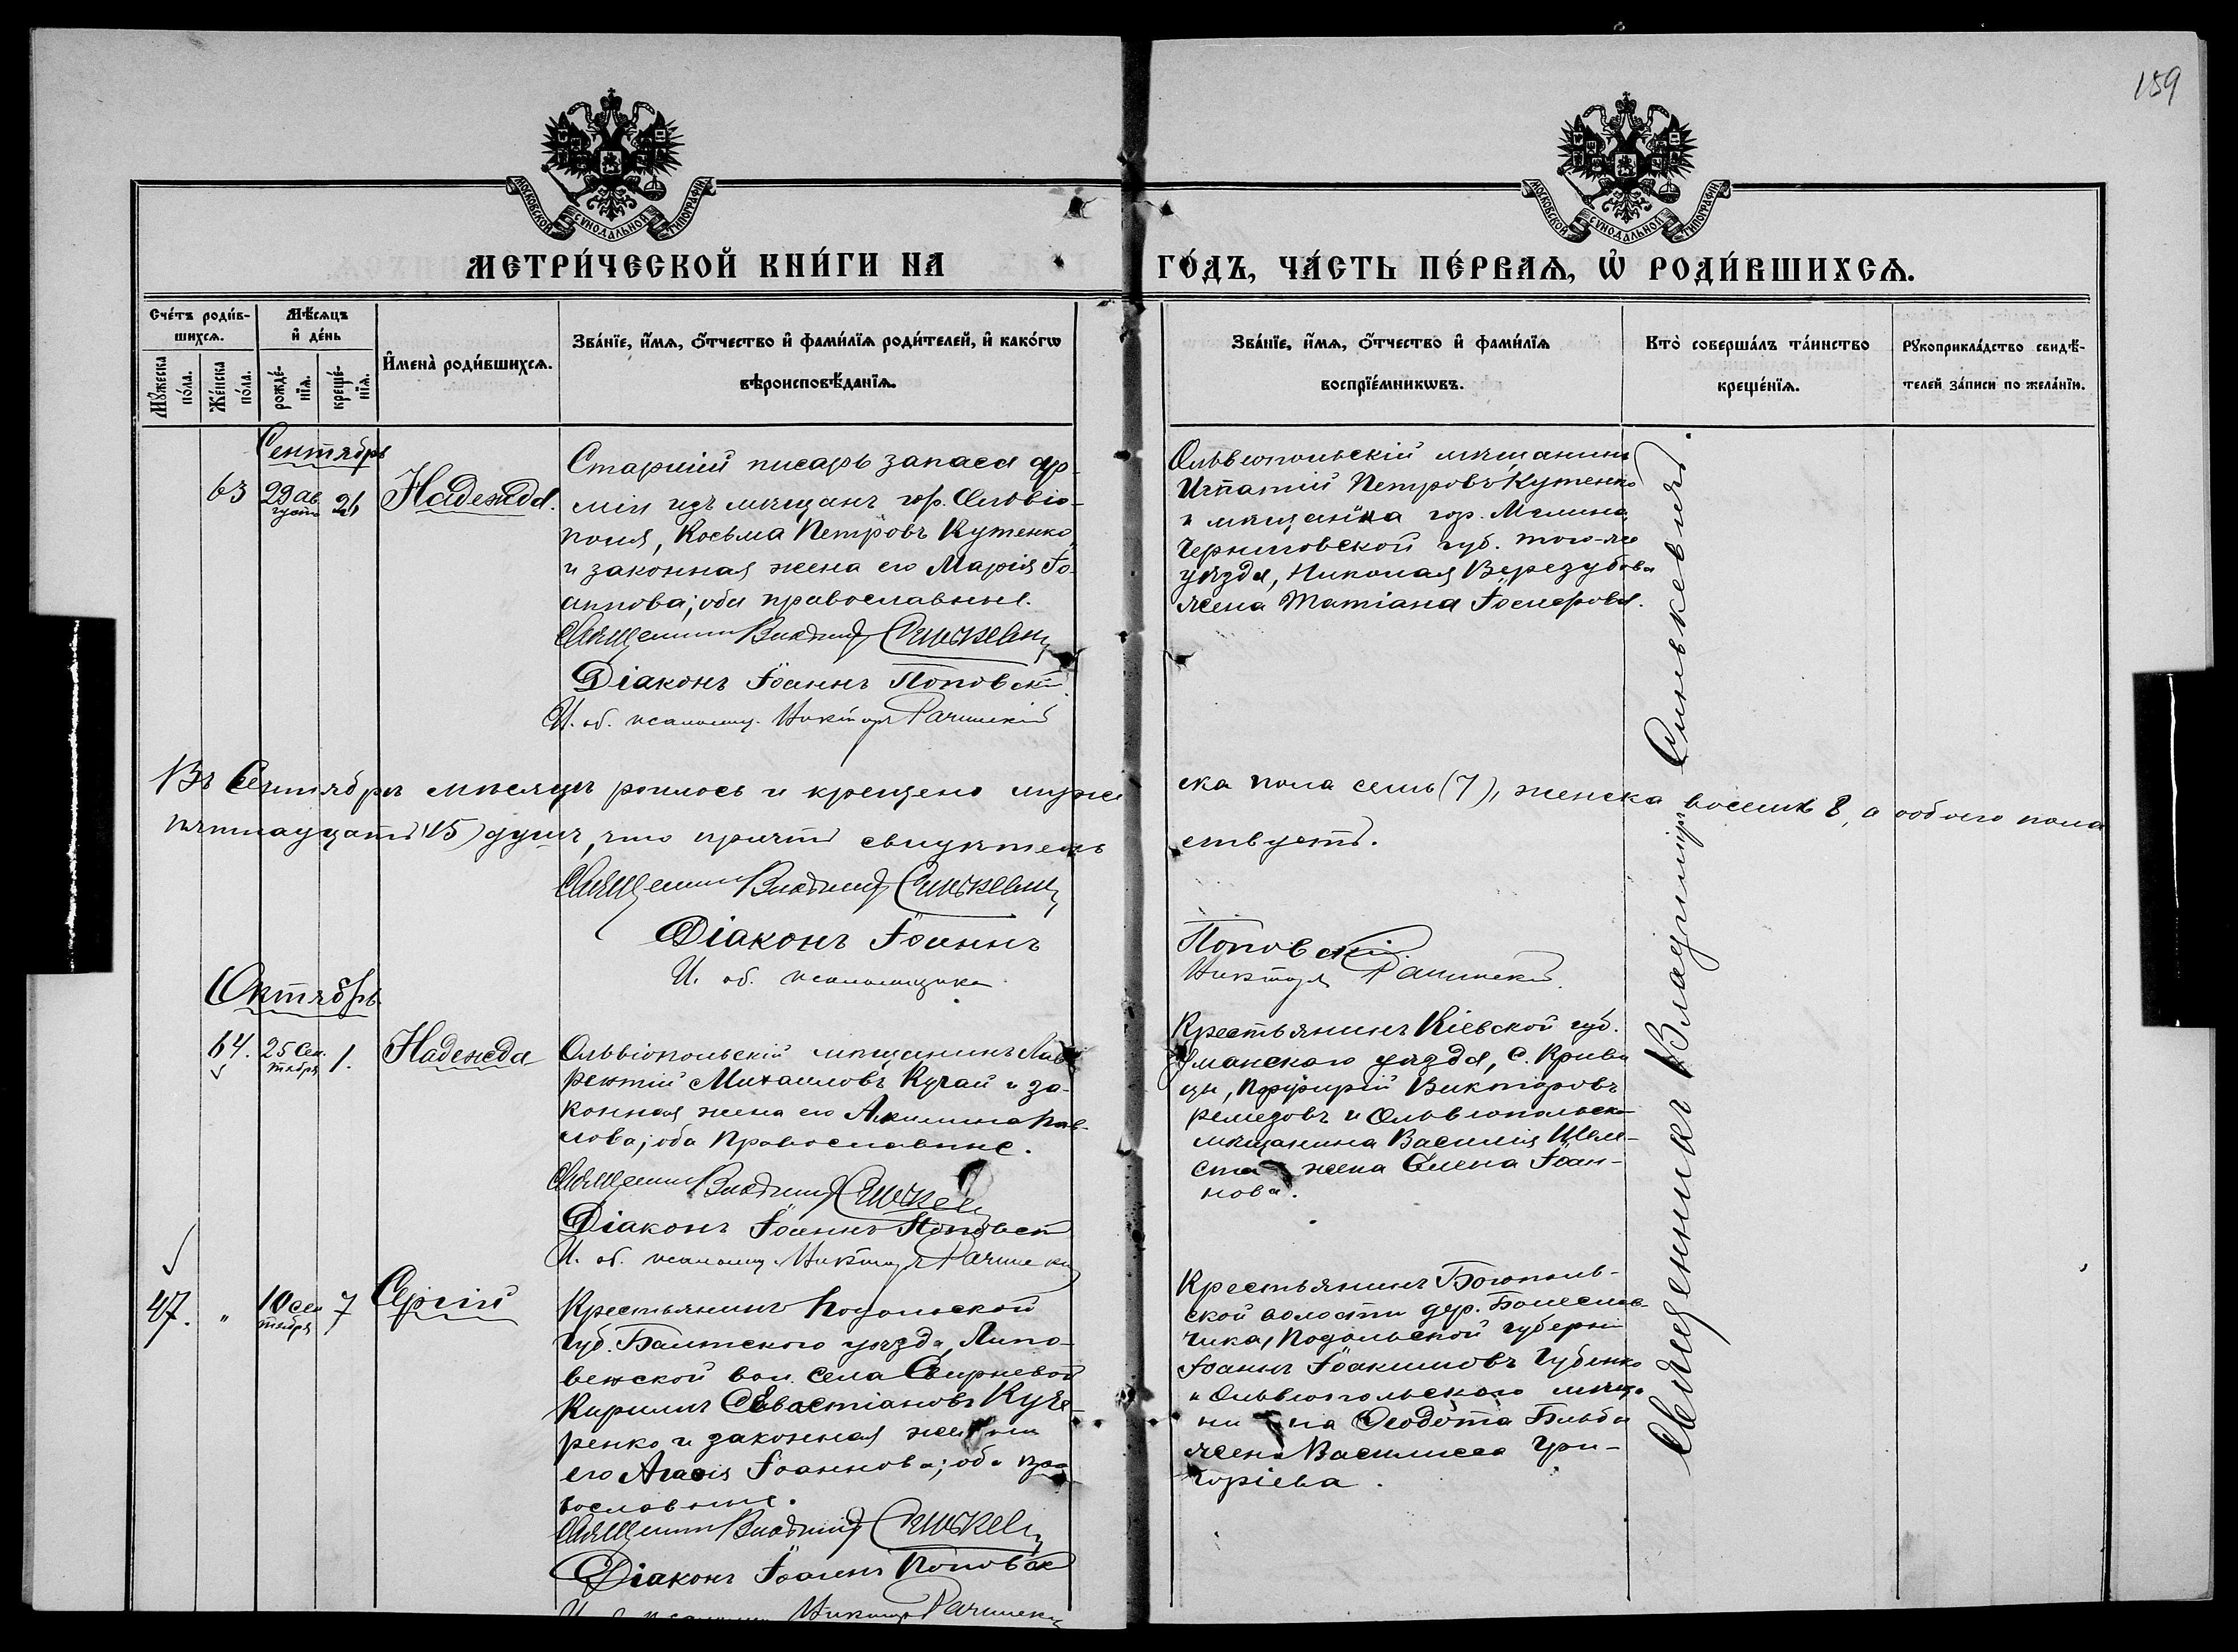 159
МОСКОВСКОЙ СѴНОДАЛЬНОЙ ТИПОГРАФІИ
МОСКОВСКОЙ СѴНОДАЛЬНОЙ ТИПОГРАФІИ
МЕТРИ́ЧЕСКОЙ КНИ́ГИ НА ГО́ДЪ, ЧА́СТЬ ПЕ́РВАѦ, Ѡ҆ РОДИ́ВШИХСѦ.
Сче́тъ роди́в-
шихсѧ.
Мꙋ́жеска
по́ла.
Же́нска
по́ла.
Мѣ́сѧцъ
и҆ де́нь
рожде́-
нїѧ.
креще́-
нїѧ.
И҆мена̀ роди́вшихсѧ.
Зва́нїе, и҆́мѧ, ѻ҆́тчество и҆ фами́лїѧ роди́телей, и҆ како́гѡ
вѣроисповѣ́данїѧ.
Зва́нїе, и҆́мѧ, ѻ҆́тчество и҆ фами́лїѧ
воспрїе́мникѡвъ.
Кто̀ соверша́лъ та́инство
креще́нїѧ.
Рꙋкоприкла́дство свидѣ́-
телей за́писи по жела́нїи.
Сентябрь
63 29 Ав
густа 21 Надежда.
Старшій писарь запаса ар-
міи изъ мѣщанъ гор. Ольвіо-
поля, Косьма Петровъ Кутенко
и законная жена его Марія Іо-
аннова; оба православные.
Священникъ Владимір Синькевич
Діаконъ Іоаннъ Поповскій
И. об. псаломщ. Викторъ Рачинскій
Ольвіопольскій мѣщанинъ
Игнатій Петровъ Кутенко
и мѣщанина гор. Мглина,
Черниговской губ. того-же
уѣзда, Николая Верезубова
жена Татіана Іосифова.
Въ Сентябрѣ мѣсяцѣ родилось и крещено муже ска пола семь (7), женска восемь 8, а обоего пола
пятнадцать (15) душъ, что причтъ свидѣтель ствуетъ.
Священникъ Владимір Синькевич
Діаконъ Іоаннъ Поповскій
И. об. псаломщика Викторъ Рачинскій
Октябрь
64. 25 Сен.
тября 1. Надежда
Ольвіопольскій мѣщанинъ Лав
рентій Михаиловъ Кучай и за-
конная жена его Акилина Пав-
лова; оба Православные.
Священникъ Владимір Синькеви
Діаконъ Іоаннъ Поповск
И. об. псаломщ. Викторъ Рачински
Крестьянинъ Кіевской губ.
Уманскаго уѣзда, С. Криви
цы, Порфирій Викторовъ
Ремезовъ и Ольвіопольск
мѣщанина Василія
жена Елена Іоан-
нова.
47. " 10 сен
тября 7 Сергій
Крестьянинъ Подольской
губ. Балтского уѣзда, Липо-
венской вол. села
Кириллъ Севастіановъ Куче-
ренко и законная жена
его Агафія Іоаннова; оба пра
вославные.
Священникъ Владимір Синькеви
Діаконъ Іоаннъ Поповск
Викторъ Рачински
Крестьянинъ Богополь-
ской волости дер. Болеслав-
чика, Подольской губерніи
Іоаннъ Іоакимовъ Губенко
и Ольвіопольского мѣща
нина Ѳеодота
жена Василисса Гри-
горіева.
Священникъ Владиміръ Синькевичъ.